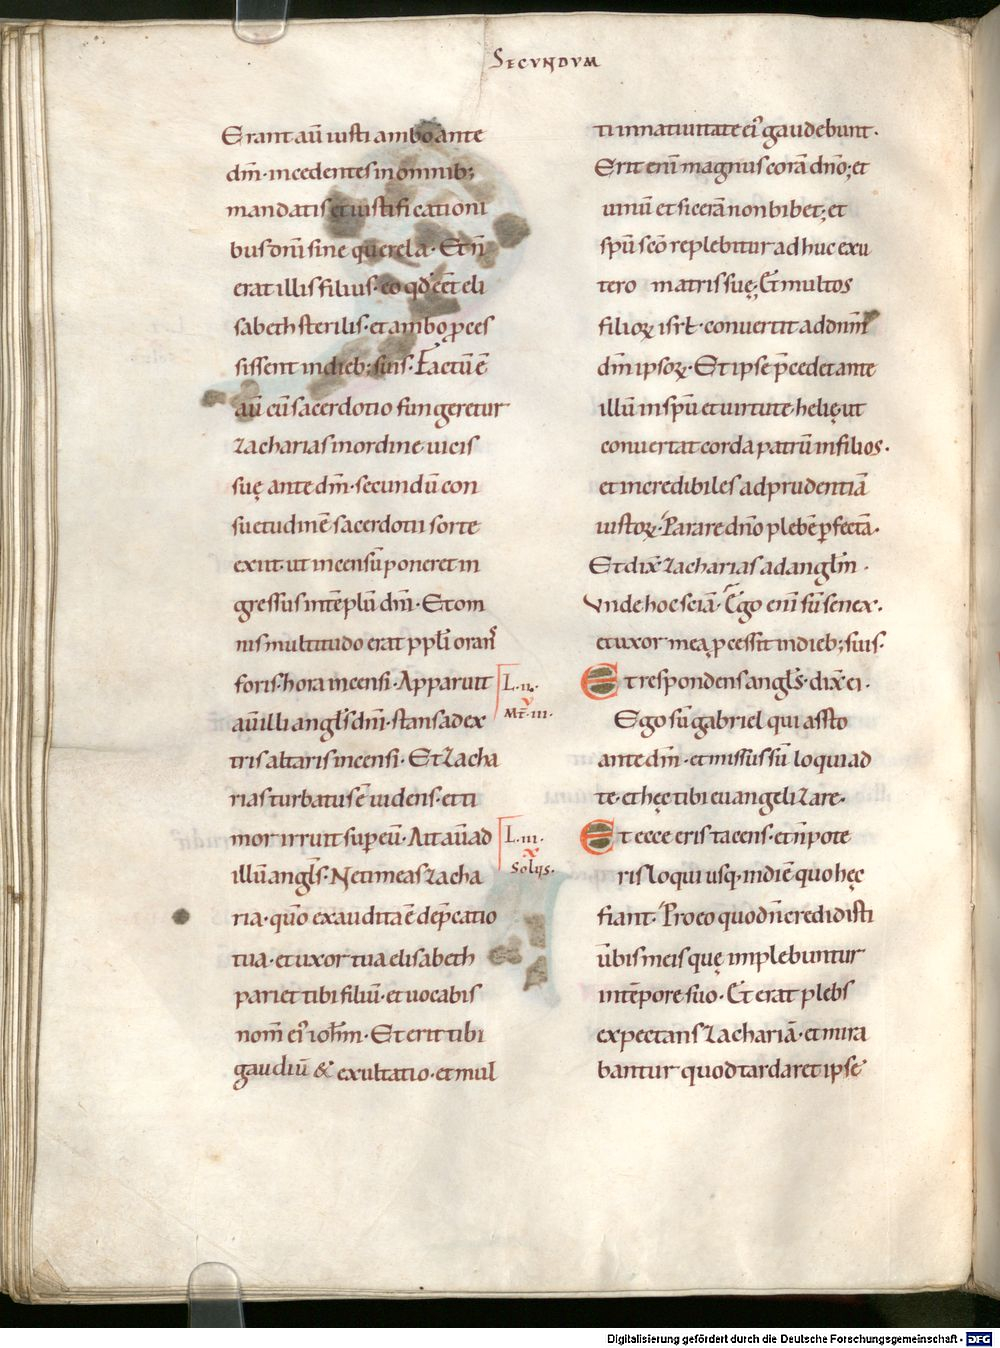 SECVNDVM
Erant aū iusti ambo ante
dm̄· incedentes in omnib;
mandatis et iustificationi
bus dnī sine querela· Et ñ
erat illis filius· eo qđ eēt eli
sabeth sterilis· et ambo ꝓces
sissent in dieb; suis· Factū ē
aū cū sacerdotio fungeretur
zacharias in ordine uicis
suę ante dm̄· secundū con
suetudinē sacerdotii sorte
exiit· ut incensū poneret in
gressus in tēplū dnī· Et om
nis multitudo erat ppłi orans
foris· hora incensi· Apparuit
aū illi angłs dnī· stans a dex
tris altaris incensi· Et zacha
rias turbatus ē uidens· et ti
mor irruit sup eū· Ait aū ad
illū angłs· Ne timeas zacha
ria· quō exaudita ē dep̄catio
tua· et uxor tua elisabeth
pariet tibi filiū· et uocabis
nom̄ ei' ioħm· Et erit tibi
gaudiū & exultatio· et mul
L·ii·
v
Mt̄·iii·
L·iii·
x
Solꝰs·
ti in natiuitate ei' gaudebunt·
Erit enī magnus corā dnō; et
uinū et sicerā non bibet; et
spū scō replebitur adhuc ex u
tero matris suę; Et multos
filioꝝ isrł· conuertit ad dnm̄
dm̄ ipsoꝝ· Et ipse p̄cedet ante
illū in spū et uirtute· helię· ut
conuertat corda patrū in filios·
et incredibiles ad prudentiā
iustoꝝ· Parare dnō plebē ꝑfectā·
Et dix̄ zacharias ad angłm·
Vnde hoc sciā· Ego enī sū senex·
et uxor mea ꝓcessit in dieb; suis·
Et respondens angłs· dix̄ ei·
Ego sū gabriel qui assto
ante dm̄· et missus sū loqui ad
te· et hęc tibi euangelizare·
Et ecce eris tacens· et ñ pote
ris loqui usq; in diē quo hęc
fiant· Pro eo quod ñ credidisti
ūbis meis quę implebuntur
in tēpore suo· Et erat plebs
expectans zachariā· et mira
bantur quod tardaret ipse
Digitalisierung gefördert durch die Deutsche Forschungsgemeinschaft - DFG